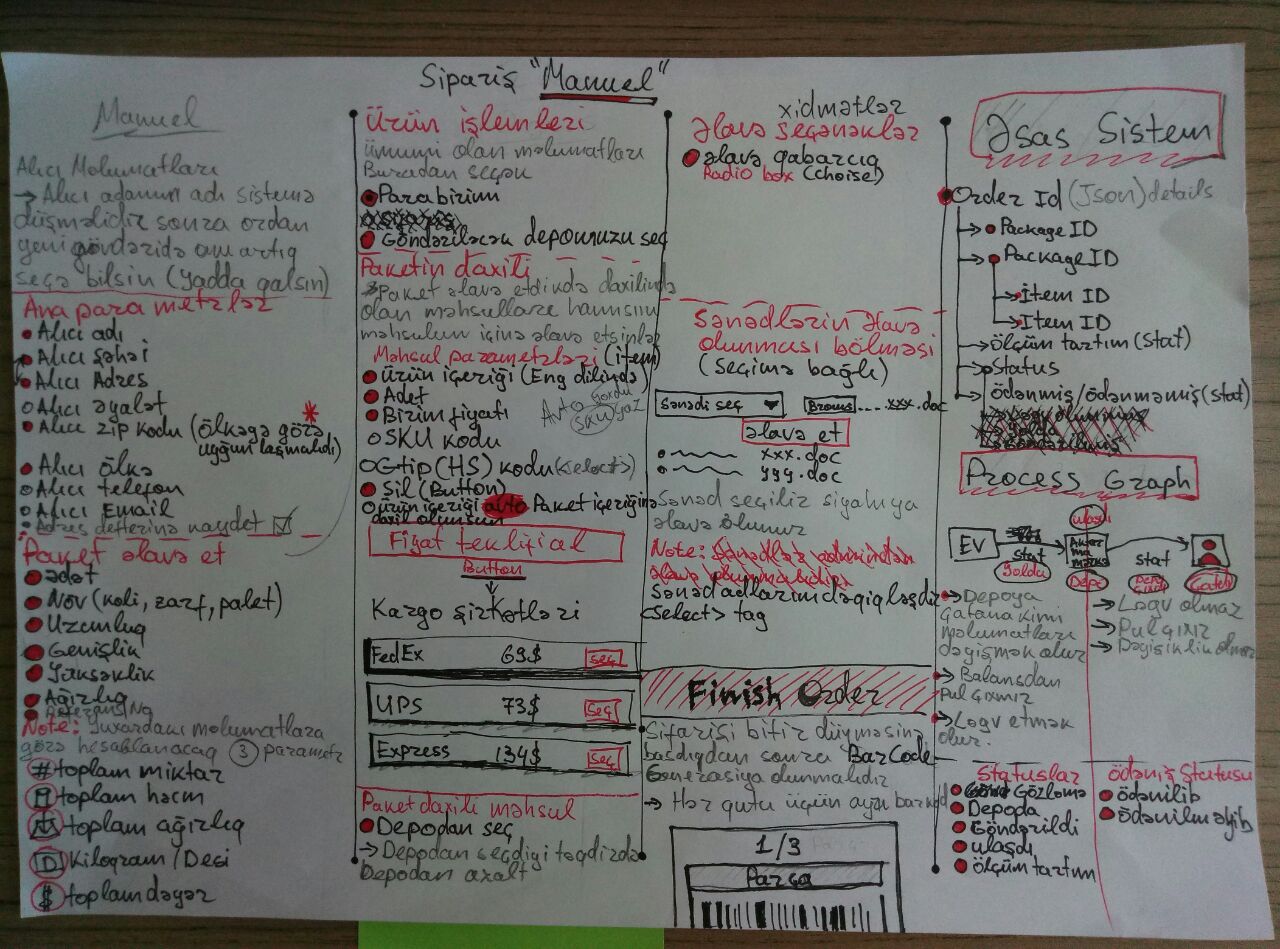 Sipariş "Manuel"
Manuel
Alıcı Məlumatları
→ Alıcı adamın adı sistemə
düşməlidir sonra ordan
yeni göndəridə onu artıq
seçə bilsin (yadda qalsın)
Ana parametrlər
Alıcı adı
Alıcı Şəhəi
Alıcı Adres
Alıcı əyalət
Alıcı zip kodu (ölkəyə görə
uyğunlaşmalıdı)
Alıcı ölkə
Alıcı telefon
Alıcı Email
Adres defterinə naydet
Paket əlavə et
ədət
Növ (koli, zarf, palet)
Uzunluq
Genişlik
Yüksəklik
Ağırlıq
Referans No
Note: Yuxardakı məlumatlara
görə hesablanacaq 3 parametr
# toplam miktar
toplam həcm
toplam ağırlıq
Kilogram / Desi
$ toplam dəyər
Ürün işlemleri
ümumi olan məlumatları
Buradan seçək
Para birimi
Göndəriləcək deponuzu seç
Paketin daxili
Paket əlavə etdində daxilində
olan məhsulları hamısını
məhsulun içinə əlavə etsinlər
Məhsul parametrləri (item)
Ürün içeriği (Eng dilində)
Adet
Birim fiyatı
SKU kodu
Avto
SKU yaz
Gtip (HS) kodu (<select>)
Sil (Button)
ürün içeriği avto Paket içeriğinə
daxil olunsun
Fiyat teklifi al
Button
Kargo şirkətləri
FedEx 69$ seç
UPS 73$ seç
Express 134$ seç
Paket daxili məhsul
Depodan seç
→ Depodan seçdiyi təqdirdə
Depodan azalt
xidmətlər
Əlavə seçənəklər
əlavə qabarcıq
Radio box (choise)
Sənədlərin əlavə
olunması bölməsi
(seçimə bağlı)
Sənədi seç Brows .... xxx.doc
əlavə et
xxx.doc
yyy.doc
Sənəd seçilir siyahıya
əlavə olunur
Note:
Sənəd adlarını dəqiqləşdir
<select> tag
Finish Order
Sifarişi bitir düyməsinə
basdıqdan sonra BarCode
Generasiya olunmalıdır
→ Hər qutu üçün ayrı barkod
1/3
Parça
Əsas Sistem
Order Id (Json) details
→ Package ID
→ Package ID
→ Item ID
→ Item ID
→ ölçüm tartım (Stat)
→ Status
→ ödənmiş/ödənməmiş (stat)
Process Graph
ulaşdı
EV stat stat
Yolda Depo
→ Depoya
çatana kimi
məlumatları
dəyişmək olur
→ Balansdan
pul çıxmır
→ Ləğv etmək
olur.
→ Ləğv olmaz
→ Pul çıxır
→ Dəyişiklik olmaz
Statuslar
Gözləmə
Depoda
Göndərildi
ulaşdı
ölçüm tartım
ödəniş Statusu
ödənilib
ödənilməyib